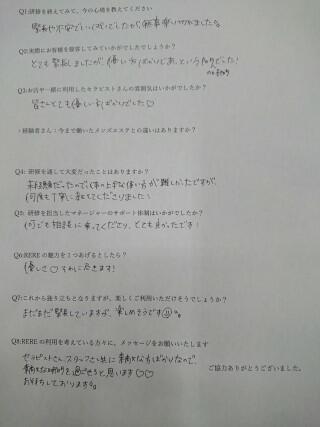 Q1:研修を終えてみて、今の心境を教えてください
緊張や不安でいっぱいでしたが、無事楽しく
Q2:実際にお客様を接客してみていかがでしたでしょうか？
とても緊張しましたが、優しい方ばかりであっという間でした！
Q3:お店や一緒に利用したセラピストさんの雰囲気はいかがでしたか？
皆さんとても優しい方ばかりでした♡
・経験者さん：今まで働いたメンズエステとの違いはありますか？
Q4: 研修を通して大変だったことはありますか？
未経験だったので体の上手な使い方が難しかったですが、
何度も丁寧に教えてくださりました！
Q5: 研修を担当したマネージャーのサポート体制はいかがでしたか？
何でも相談に乗ってくださり、とても良かったです！
Q6:REREの魅力を1つあげるとしたら？
優しさ♡それに尽きます！
Q7:これから独り立ちとなりますが、楽しくご利用いただけそうでしょうか？
まだまだ緊張していますが、楽しめそうです
Q8:REREの利用を考えている方々に、メッセージをお願いいたします
セラピストさん、スタッフさん共に素敵な方ばかりなので、
素敵な時間を過ごせると思います♡♡
お待ちしております
ご協力ありがとうございました。